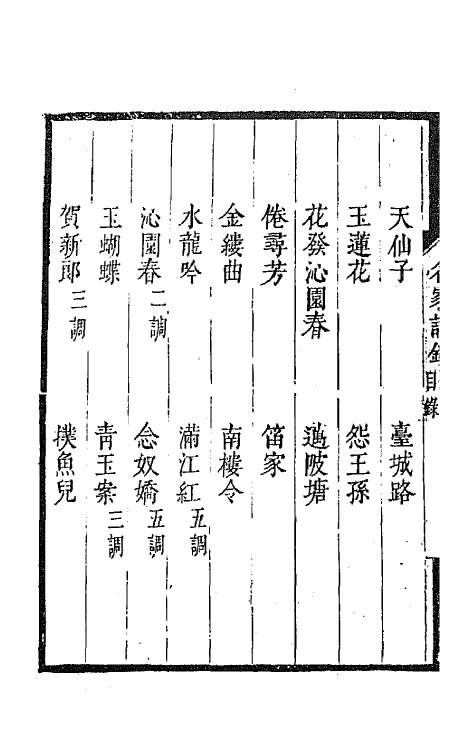 名家詞鈔目錄
天仙子　臺城路
玉蓮花　怨王孫
花發沁園春　過陂塘
倦尋芳　笛家
金縷曲　南樓令
水龍吟　滿江紅五調
沁園春二調　念奴嬌五調
玉蝴蝶　青玉案三調
賀新郎三調　撲魚兒